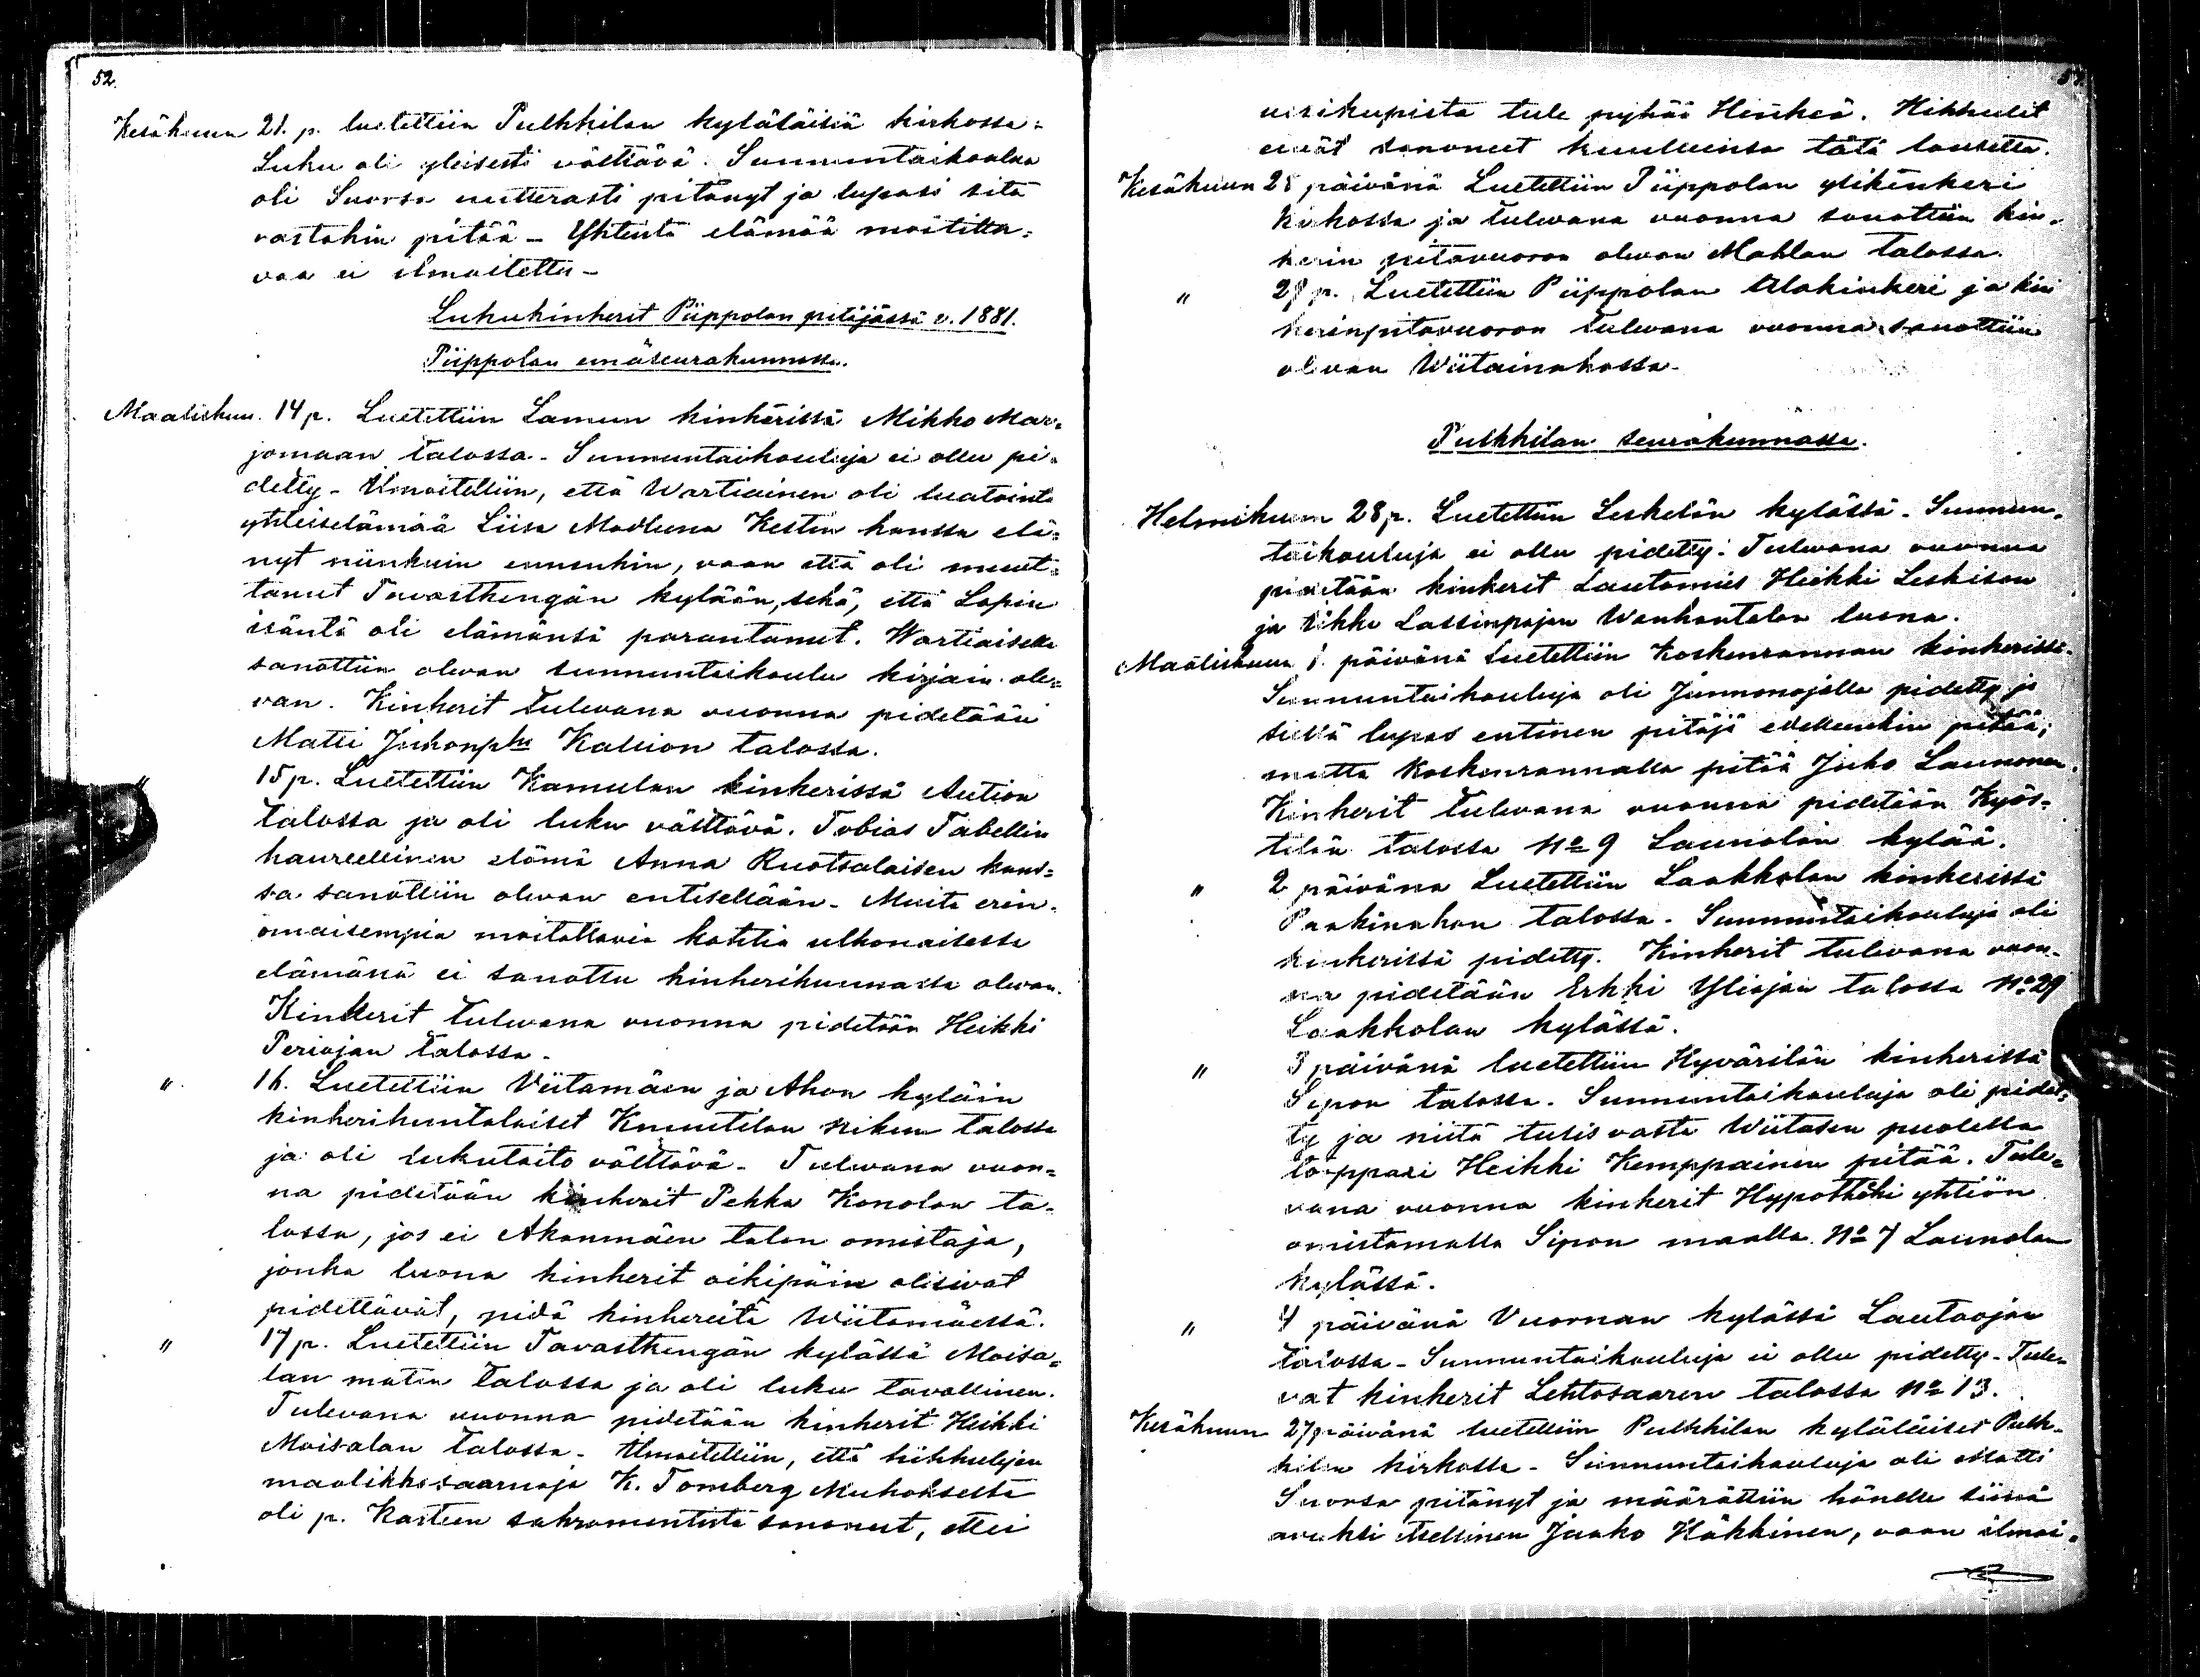 52.
Kesäkuun 21. p. luetettiin Pulkkilan kyläläisiä kirkossa.
Luku oli yleisesti välttävä. Sunnuntaikoulua
oli Suorsa uutterasti pitänyt ja lupasi sitä
vastakin pitää – Yhteistä elämää moititta=
vaa ei ilmoitettu –
Lukukinkerit Piippolan pitäjässä v. 1881.
Piippolan emäseurakunnassa.
Maaliskuu. 14 p. Luetettiin Lamun kinkerissä Mikko Mar=
jomaan talossa. Sunnuntaikouluja ei ollu pi=
detty – Ilmoitettiin, että Wartiainen oli luatointa
yhteiselämää Liisa Madleena Kestin kanssa elä=
nyt niinkuin ennenkin, vaan että oli muut=
tanut Tavastkengän kylään, sekä, että Lapin
isäntä oli elämänsä parantanut. Wartiaisella
sanottiin olevan sunnuntaikoulu kirjain ole=
van. Kinkerit tulevana vuonna pidetään
Matti Juhonp. Kallion talossa.
" 15 p. Luetettiin Kamulan kinkerissä Aution
talossa ja oli luku välttävä. Tobias Tabellin
haureellinen elämä Anna Ruotsalaisen kans=
sa sanottiin olevan entisellään. Muita erin=
omaisempia moitittavia kohtia ulkonaisessa
elämänä ei sanottu kinkerikunnassa olevan.
Kinkerit tulevana vuonna pidetään Heikki
Periojan talossa.
" 16. Luetettiin Viitamäen ja Ahon kyläin
kinkerikuntalaiset Knuutilan talossa
ja oli lukutaito välttävä. Tulevana vuon=
na pidetään kinkerit Pekka Konolan ta=
lossa, jos ei Akanmäen talon omistaja,
jonka luona kinkerit oikipäin olisivat
pidettävät, pidä kinkereitä Wiitamäessä.
" 17 p. Luetettiin Tavastkengän kylässä Moisa=
lan matin talossa ja oli luku tavallinen.
Tulevana vuonna pidetään kinkerit Heikki
Moisalan talossa. Ilmoitettiin, että hihhulijen
maallikkosaarnaja K. Tornberg Muhokselta
oli p. Kasteen sakramentista sanonut, ettei
vesikupista tule pyhää Henkeä. Hihhulit
eivät sanoneet kuulleensa tätä lausetta.
Kesäkuun 25 päivänä Luetettiin Piippolan ylikinkeri
kirkossa ja tulevana vuonna sanottiin kin=
kerin pitovuoron olevan Mahlan talossa.
" 28 p. Luetettiin Piippolan Alakinkeri ja kin
kerinpitovuoron tulevana vuonna sanottiin
olevan Wiitainahossa.
Pulkkilan seurakunnassa.
Helmikuun 28 p. Luetettiin Leskelän kylässä. Sunnun=
taikouluja ei ollu pidetty. Tulevana vuonna
pidetään kinkerit Lautamies Heikki Leskisen
ja Erkki Lassinpojan Wanhantalon luona.
Maaliskuun 1. päivänä luetettiin Koskenrannan kinkerissä.
Sunnuntaikouluja oli Junnonojalla pidetty ja
siellä lupas entinen pitäjä edelleenkin pitää;
mutta Koskenrannalla pitää Juho Launonen.
Kinkerit tulevana vuonna pidetään Kyös=
tilän talossa No 9 Launolan kylää.
" 2 päivänä Luetettiin Laakkolan kinkerissä
Paakinahon talossa. Sunnuntaikouluja oli
kinkerissä pidetty. Kinkerit tulevana vuon=
na pidetään Erkki Yliojan talossa No 29
Laakkolan kylässä.
" 3 päivänä luetettiin Hyvärilän kinkerissä
Sipon talossa. Sunnuntaikouluja oli pidet=
ty ja niitä tulis vasta Wiitasen puolella
torppari Heikki Kemppainen pitää. Tule=
vana vuonna kinkerit Hypothéki yhtiön
omistamalla Sipon maalla No 7 Launolan
kylässä.
" 4 päivänä Vuornan kylässä Lautaojan
talossa – Sunnuntaikouluja ei ollu pidetty. Tule=
vat kinkerit Lehtosaaren talossa No 13.
Kesäkuun 27 päivänä luetettiin Pulkkilan kyläläiset Pulk=
kilan kirkossa – Sunnuntaikouluja oli Matti
Suorsa pitänyt ja määrättiin hänelle siinä
avuksi itsellinen Jaako Häkkinen, vaan ilmoi=